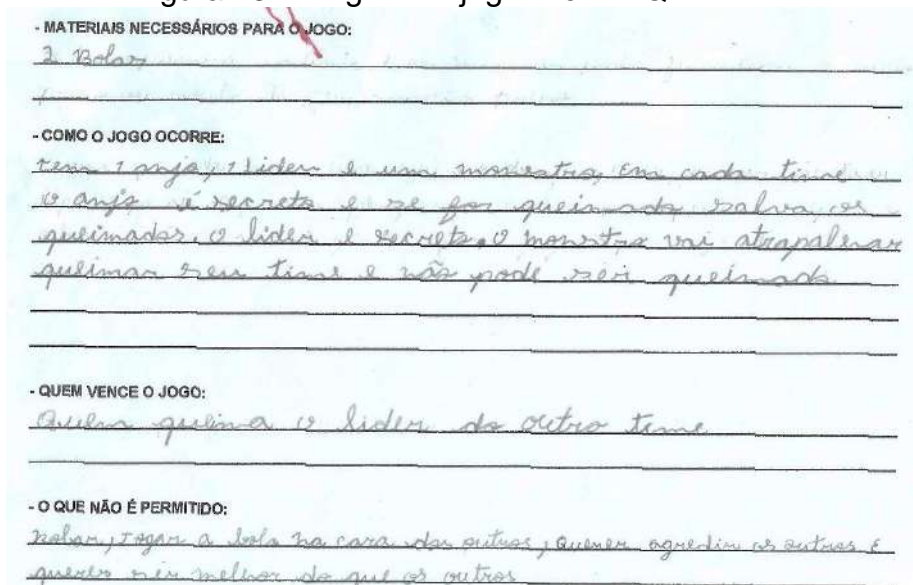 - MATERIAIS NECESSÁRIOS PARA O JOGO:
2 Bolas
- COMO O JOGO OCORRE:
tem 1 anjo, 1 lider e um monstro, em cada time
o anjo é secreto e se for queimado salva os
queimados, o lider é secreto, o monstro vai atrapalhar
queimar seu time e não pode ser queimado
- QUEM VENCE O JOGO:
Quem queima o lider do outro time
- O QUE NÃO É PERMITIDO:
Robar, Jogar a bola na cara dos outros, Querer agredir os outros E
querer ser melhor do que os outros